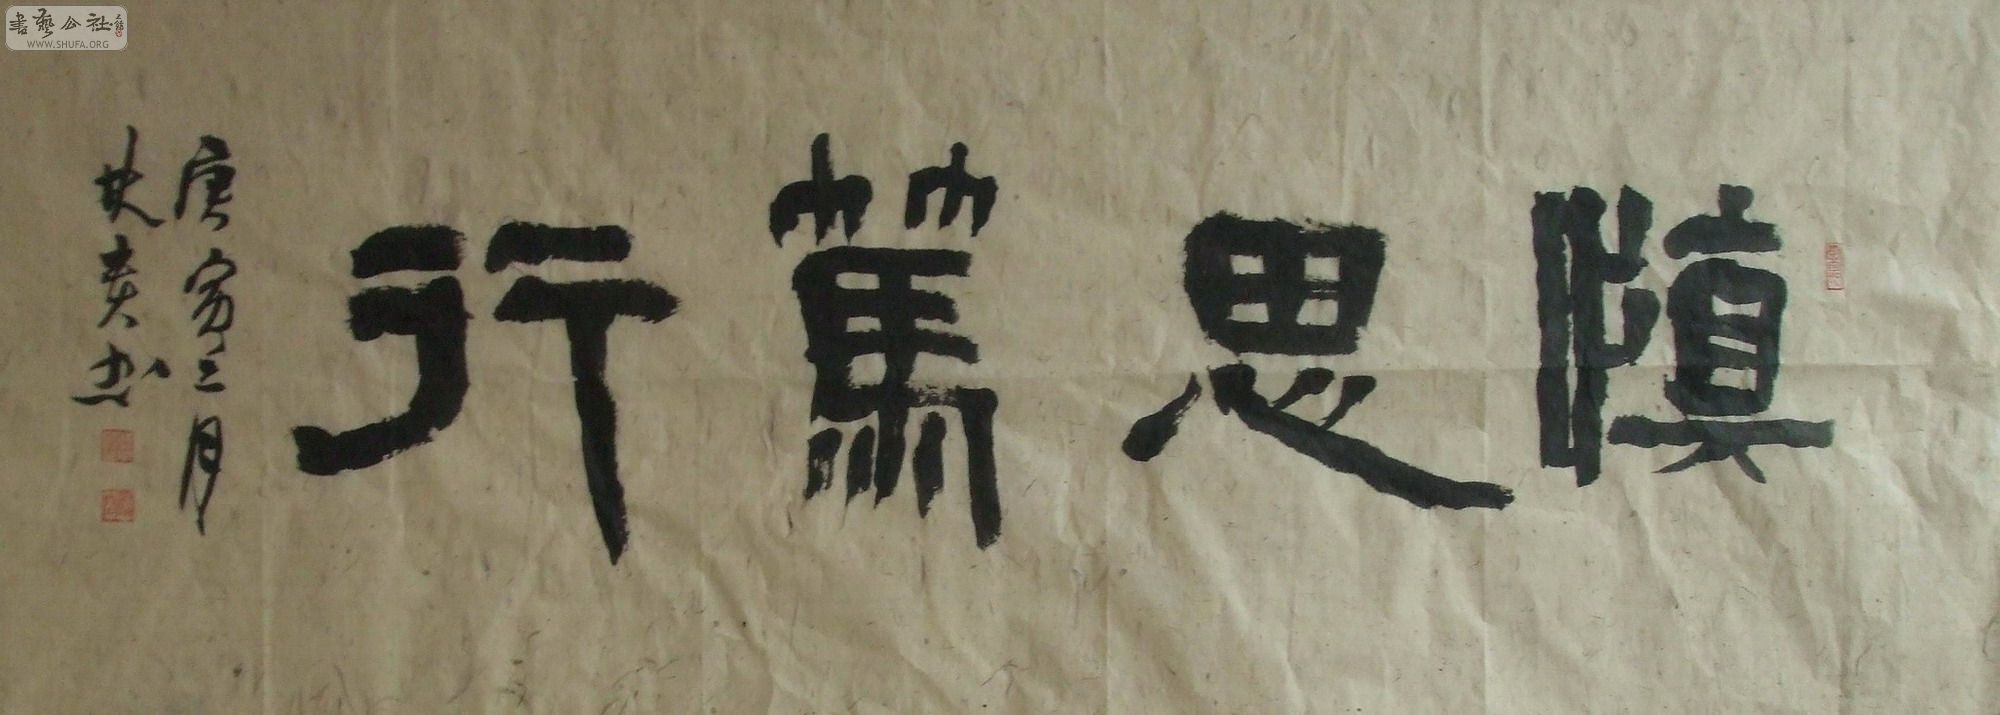 慎思篤行
庚寅三月
書藝公社
WWW.SHUFA.ORG